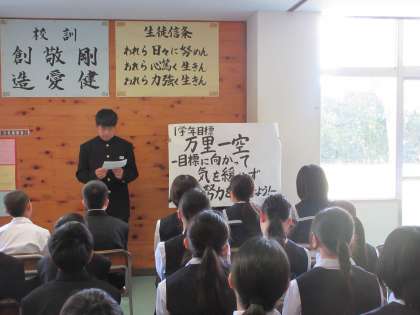 校訓
剛健
敬愛
創造
生徒信条
われら 日々に 努めん
われら 心篤く 生きん
われら 力強く 生きん
1学年目標
万里一空
－目標に向かって
気を緩めず
努力を
しよう－